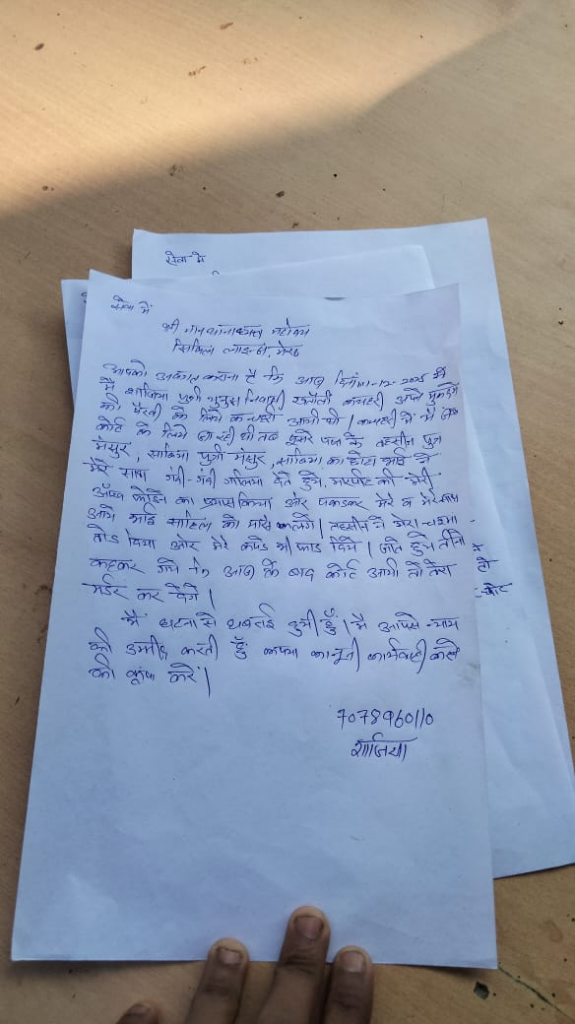 सेवा में
सेवा में
श्री मान थानाध्यक्ष महोदय
सिविल लाइन, मेरठ
आपको अवगत कराना है कि आज दिनांक -12-2025 को
मैं शाजिया पुत्री युनुस निवासी कचहरी अपने मुकदमे
की पैरवी के लिये कचहरी आयी थी। कचहरी में मैं जब
कोर्ट के लिये जा रही थी तब दूसरे पक्ष के तहसीन पुत्र
मंसुर, साबिया पुत्री मंसुर, साबिया का छोटा भाई ने
मेरे साथ गंदी-गंदी गालिया देते हुये मारपीट की मेरी
आँख फोडने का प्रयास किया और पकडकर मेरे व मेरे साथ
आये भाई साहिल को मारने लगे। तहसीन ने मेरा चश्मा
तोड दिया और मेरे कपडे भी फाड दिये। जाते हुये तीनो
कहकर गये कि आज के बाद कोर्ट आयी तो तेरा
मर्डर कर देंगे।
मैं घटना से घबराई हुयी हूँ। मैं आपसे न्याय
की उम्मीद करती हूँ कृप्या कानूनी कार्यवाही करने
की कृपा करें।
7078960110
शाजिया